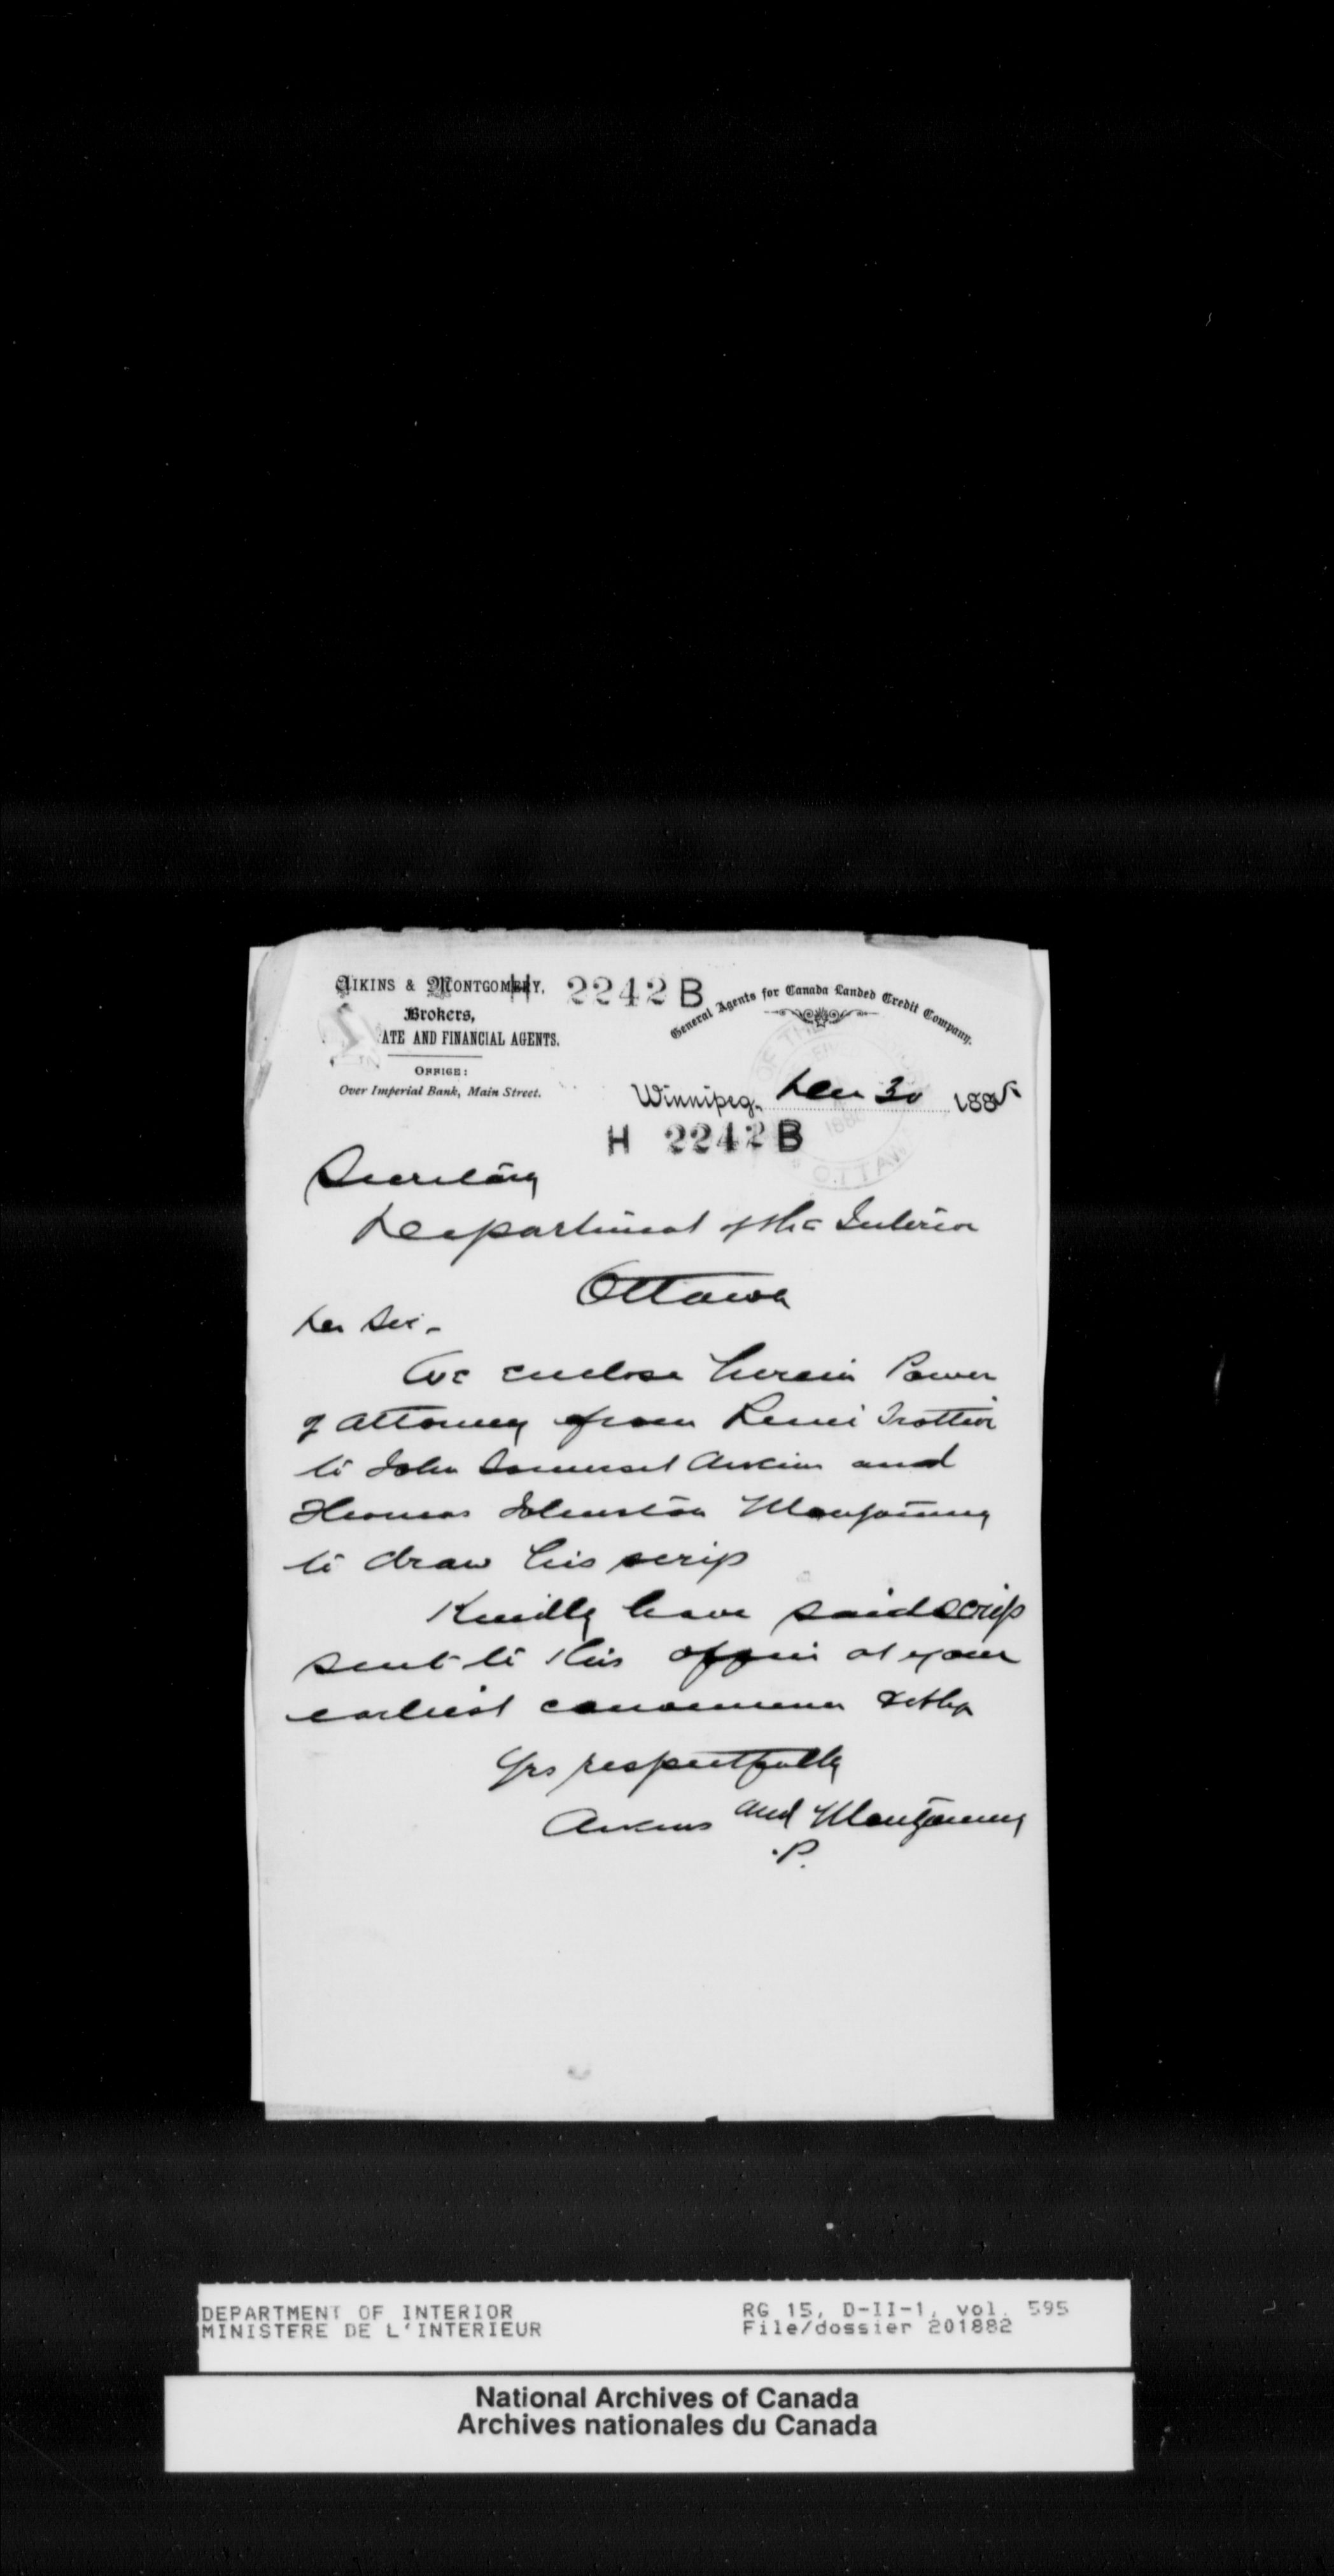 AIKINS & MONTGOMERY,
H 2242 B
Brokers,
ATE AND FINANCIAL AGENTS.
OFFICE:
Over Imperial Bank, Main Street.
General Agents for Canada Landed Credit Company.
Winnipeg, Dec 30 1885
H 2242 B
OTTAWA
Secretary
Department of the Interior
Ottawa
Dr Sir -
We enclose herein Power
of attorney from Remi Trottier
to John Somerset Aikins and
Thomas Johnston Montgomery
to draw his scrip
Kindly have said scrip
sent to this office at your
earliest convenience
Yrs respectfully
Aikins and Montgomery
P.
DEPARTMENT OF INTERIOR
MINISTERE DE L'INTERIEUR
RG 15, D-II-1, vol. 595
File/dossier 201882
National Archives of Canada
Archives nationales du Canada